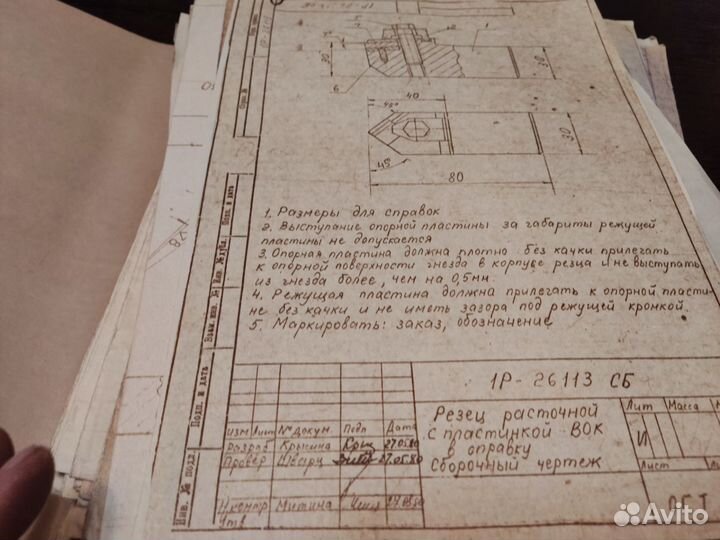 5
7
2
1
7°
30
6
30
40
45°
45°
30
80
1. Размеры для справок
2. Выступание опорной пластины за габариты режущей
пластины не допускается
3. Опорная пластина должна плотно без качки прилегать
к опорной поверхности гнезда в корпусе резца и не выступать
из гнезда более, чем на 0,5мм.
4. Режущая пластина должна прилегать к опорной пласти-
не без качки и не иметь зазора под режущей кромкой.
5. Маркировать: заказ, обозначение
1Р-26113 СБ
Резец расточной
с пластинкой ВОК
в оправку
Сборочный чертеж
Лит Масса
И
Лист
ОГТ
Изм Лист № докум. Подп Дата
Разраб Крысина 27.05.80
Провер Шварц 27.05.80
Н.контр Митина
Утв
Подп. и дата
Инв. № дубл.
Взам. инв. №
Подп. и дата
Инв. № подл.
Avito